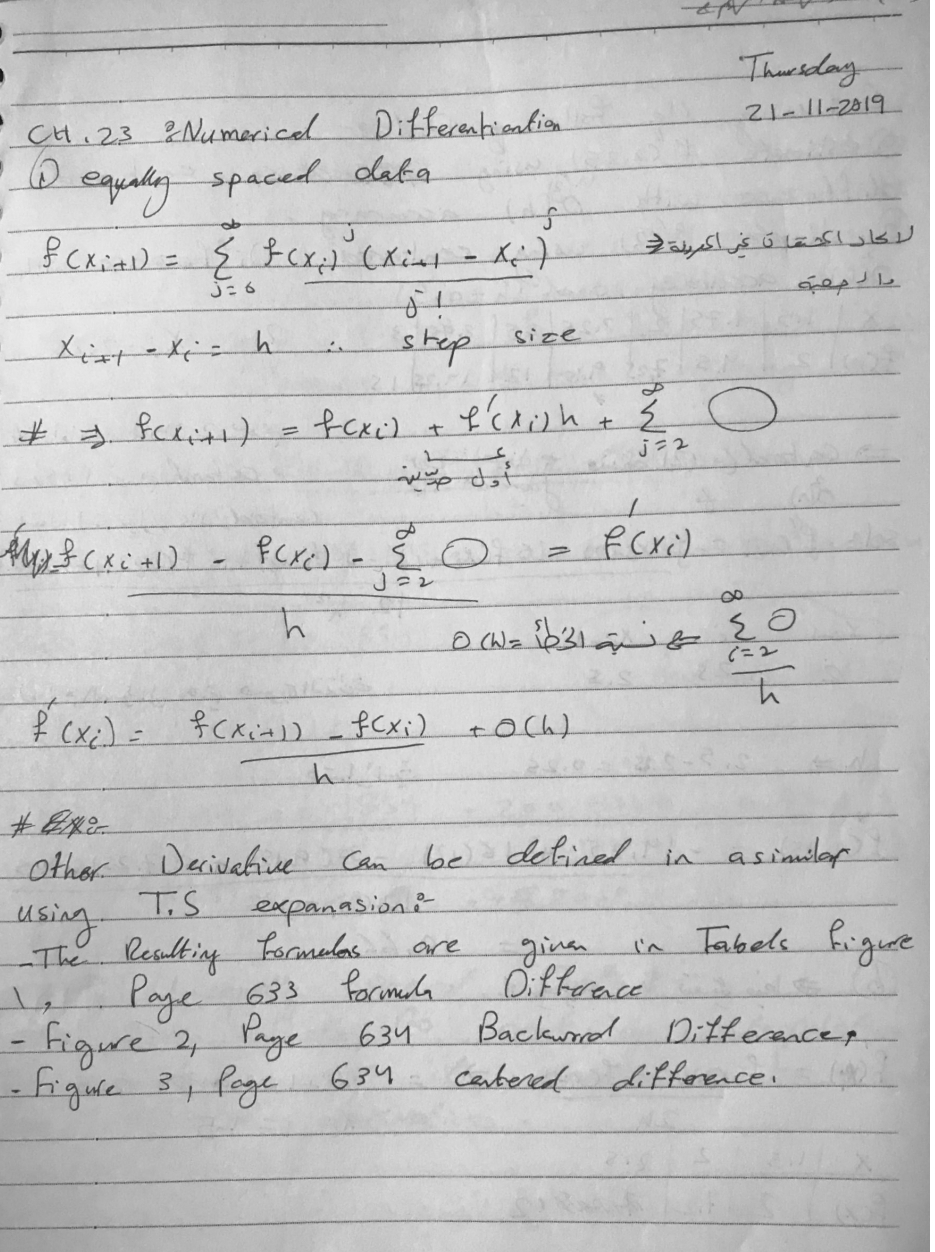 Thursday
21-11-2019
CH.23 : Numerical Differentiantion
① equally spaced data
f(xᵢ₊₁) = Σ_{j=0}^{∞} f(xᵢ)^j (xᵢ₊₁ - xᵢ)^j / j!
xᵢ₊₁ - xᵢ = h ∴ step size
# ⇒ f(xᵢ₊₁) = f(xᵢ) + f'(xᵢ)h + Σ_{j=2}^{∞} ◯
أول
f(xᵢ₊₁) - f(xᵢ) - Σ_{j=2}^{∞} ◯ / h = f'(xᵢ)
Σ_{i=2}^{∞} ◯ / h ⇐ نسبة الخطأ = O(h)
f'(xᵢ) = f(xᵢ₊₁) - f(xᵢ) / h + O(h)
# Ex:-
Other Derivative can be defined in a similar
using T.S expanasion:-
-The Resulting formulas are given in Tabels Figure
1, Page 633 formula Difference
- Figure 2, Page 634 Backword Difference,
- Figure 3, Page 634 centered difference.